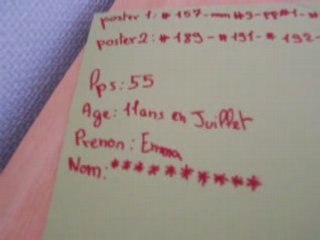 poster 1: # 157-
poster 2: # 189-# 191-# 192-
Pps: 55
Age: 11ans en Juillet
Prenon: Emma
Nom: **********